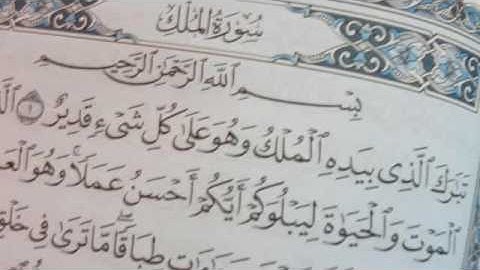 سُورَةُ ٱلْمُلْكِ
بِسْمِ ٱللَّهِ ٱلرَّحْمَٰنِ ٱلرَّحِيمِ
تَبَٰرَكَ ٱلَّذِى بِيَدِهِ ٱلْمُلْكُ وَهُوَ عَلَىٰ كُلِّ شَىْءٍ قَدِيرٌ ١
ٱلْمَوْتَ وَٱلْحَيَوٰةَ لِيَبْلُوَكُمْ أَيُّكُمْ أَحْسَنُ عَمَلًا ۚ وَهُوَ
طِبَاقًا ۖ مَّا تَرَىٰ فِى